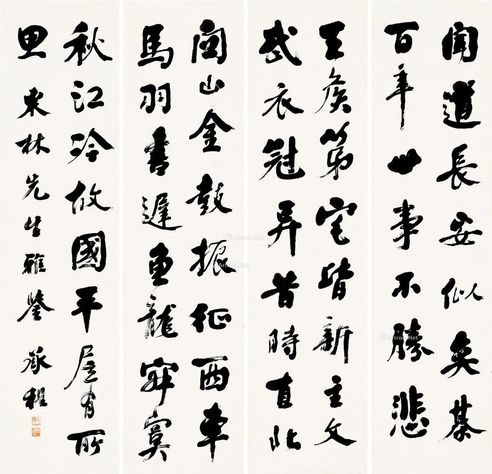 聞道長安似奕棊
百年世事不勝悲
王侯第宅皆新主文
武衣冠异昔時直北
關山金鼓振征西車
馬羽書遲魚龍寂寞
秋江冷故國平居有所
思 東林先生雅鑒